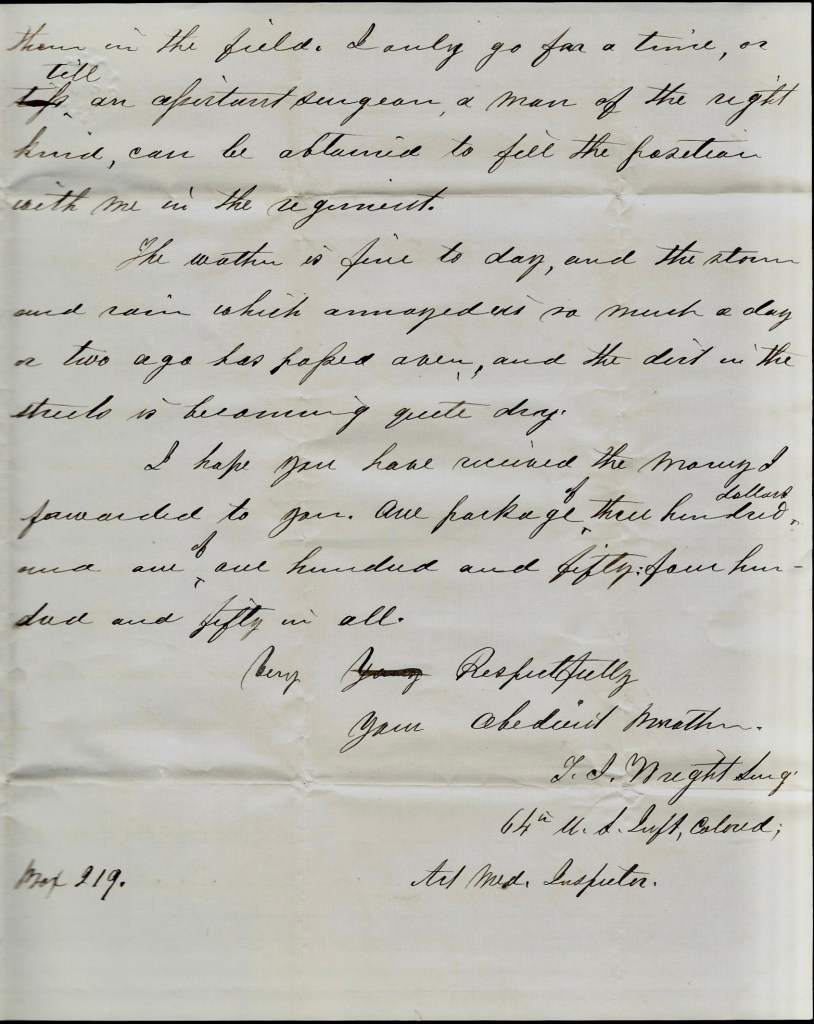 them in the field. I only go for a time, or
till
an assistant surgeon, a man of the right
kind, can be obtained to fill the position
with me in the regiment.
The wather is fine to day, and the storm
and rain which annoyed us so much a day
or two ago has passed over, and the dirt in the
streets is becoming quite dry.
I hope you have received the money I
forwarded to you. One package of three hundred dollars,
and one of one hundred and fifty: four hun-
dred and fifty in all.
Very Respectfully
Your Obedient Brother.
T. J. Wright Surg.
64th U. S. Inft, Colored;
Act Med. Inspector.
Box 219.